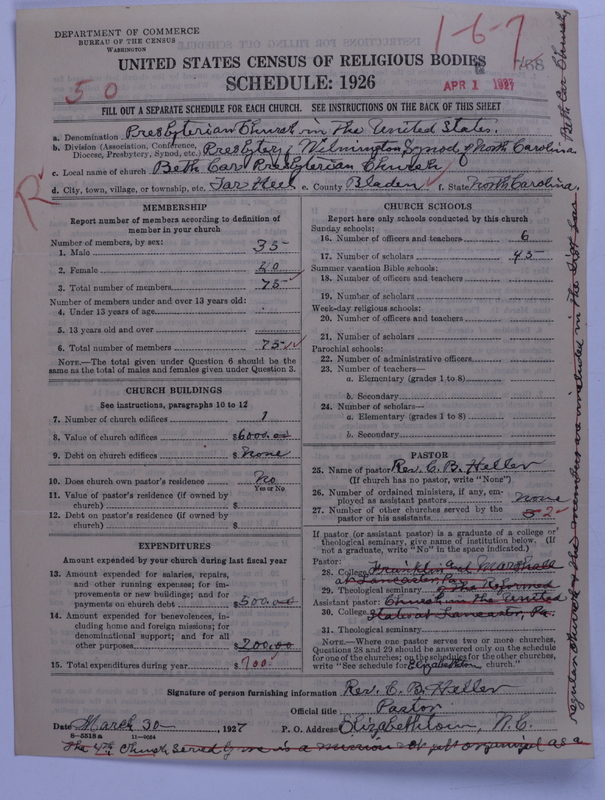 DEPARTMENT OF COMMERCE
BUREAU OF THE CENSUS
WASHINGTON
1-6-7
UNITED STATES CENSUS OF RELIGIOUS BODIES
SCHEDULE: 1926
APR 1 1927
50
FILL OUT A SEPARATE SCHEDULE FOR EACH CHURCH. SEE INSTRUCTIONS ON THE BACK OF THIS SHEET
a. Denomination Presbyterian Church in the United States.
b. Division (Association, Conference, Diocese, Presbytery, Synod, etc.) Presbytery Wilmington, Synod of North Carolina
c. Local name of church Beth Car Presbyterian Church
d. City, town, village, or township, etc. Tar Heel e. County Bladen f. State North Carolina.
R
MEMBERSHIP
Report number of members according to definition of
member in your church
Number of members, by sex:
1. Male 35
2. Female
3. Total number of members 75
Number of members under and over 13 years old:
4. Under 13 years of age
5. 13 years old and over
6. Total number of members 75
NOTE.—The total given under Question 6 should be the
same as the total of males and females given under Question 3.
CHURCH BUILDINGS
See instructions, paragraphs 10 to 12
7. Number of church edifices 1
8. Value of church edifices $6000.00
9. Debt on church edifices $ None
10. Does church own pastor's residence No
Yes or No
11. Value of pastor's residence (if owned by
church) $
12. Debt on pastor's residence (if owned by
church) $
EXPENDITURES
Amount expended by your church during last fiscal year
13. Amount expended for salaries, repairs,
and other running expenses; for im-
provements or new buildings; and for
payments on church debt $500.00
14. Amount expended for benevolences, in-
cluding home and foreign missions; for
denominational support; and for all
other purposes $200.00
15. Total expenditures during year $700.
CHURCH SCHOOLS
Report here only schools conducted by this church
Sunday schools:
16. Number of officers and teachers 6
17. Number of scholars 45
Summer vacation Bible schools:
18. Number of officers and teachers
19. Number of scholars
Week-day religious schools:
20. Number of officers and teachers
21. Number of scholars
Parochial schools:
22. Number of administrative officers
23. Number of teachers—
a. Elementary (grades 1 to 8)
b. Secondary
24. Number of scholars—
a. Elementary (grades 1 to 8)
b. Secondary
PASTOR
25. Name of pastor Rev. E. B. Heller
(If church has no pastor, write "None")
26. Number of ordained ministers, if any, em-
ployed as assistant pastors none
27. Number of other churches served by the
pastor or his assistants 2
If pastor (or assistant pastor) is a graduate of a college or
theological seminary, give name of institution below. (If
not a graduate, write "No" in the space indicated.)
Pastor:
28. College Franklin and Marshall
at Lancaster, Pa.
29. Theological seminary of the Reformed
Assistant pastor: Church in the United
30. College States at Lancaster, Pa.
31. Theological seminary
NOTE.—Where one pastor serves two or more churches,
Questions 28 and 29 should be answered only on the schedule
for one of the churches; on the schedules for the other churches,
write "See schedule for Elizabethtown church."
Signature of person furnishing information Rev. E. B. Heller
Official title Pastor
Date March 30, 1927 P. O. Address Elizabethtown, N. C.
8-5518a 11-9024
The 4th Church served by me is a mission not yet organized as a
regular church & the members are included in the Beth Car
Beth Car Church,